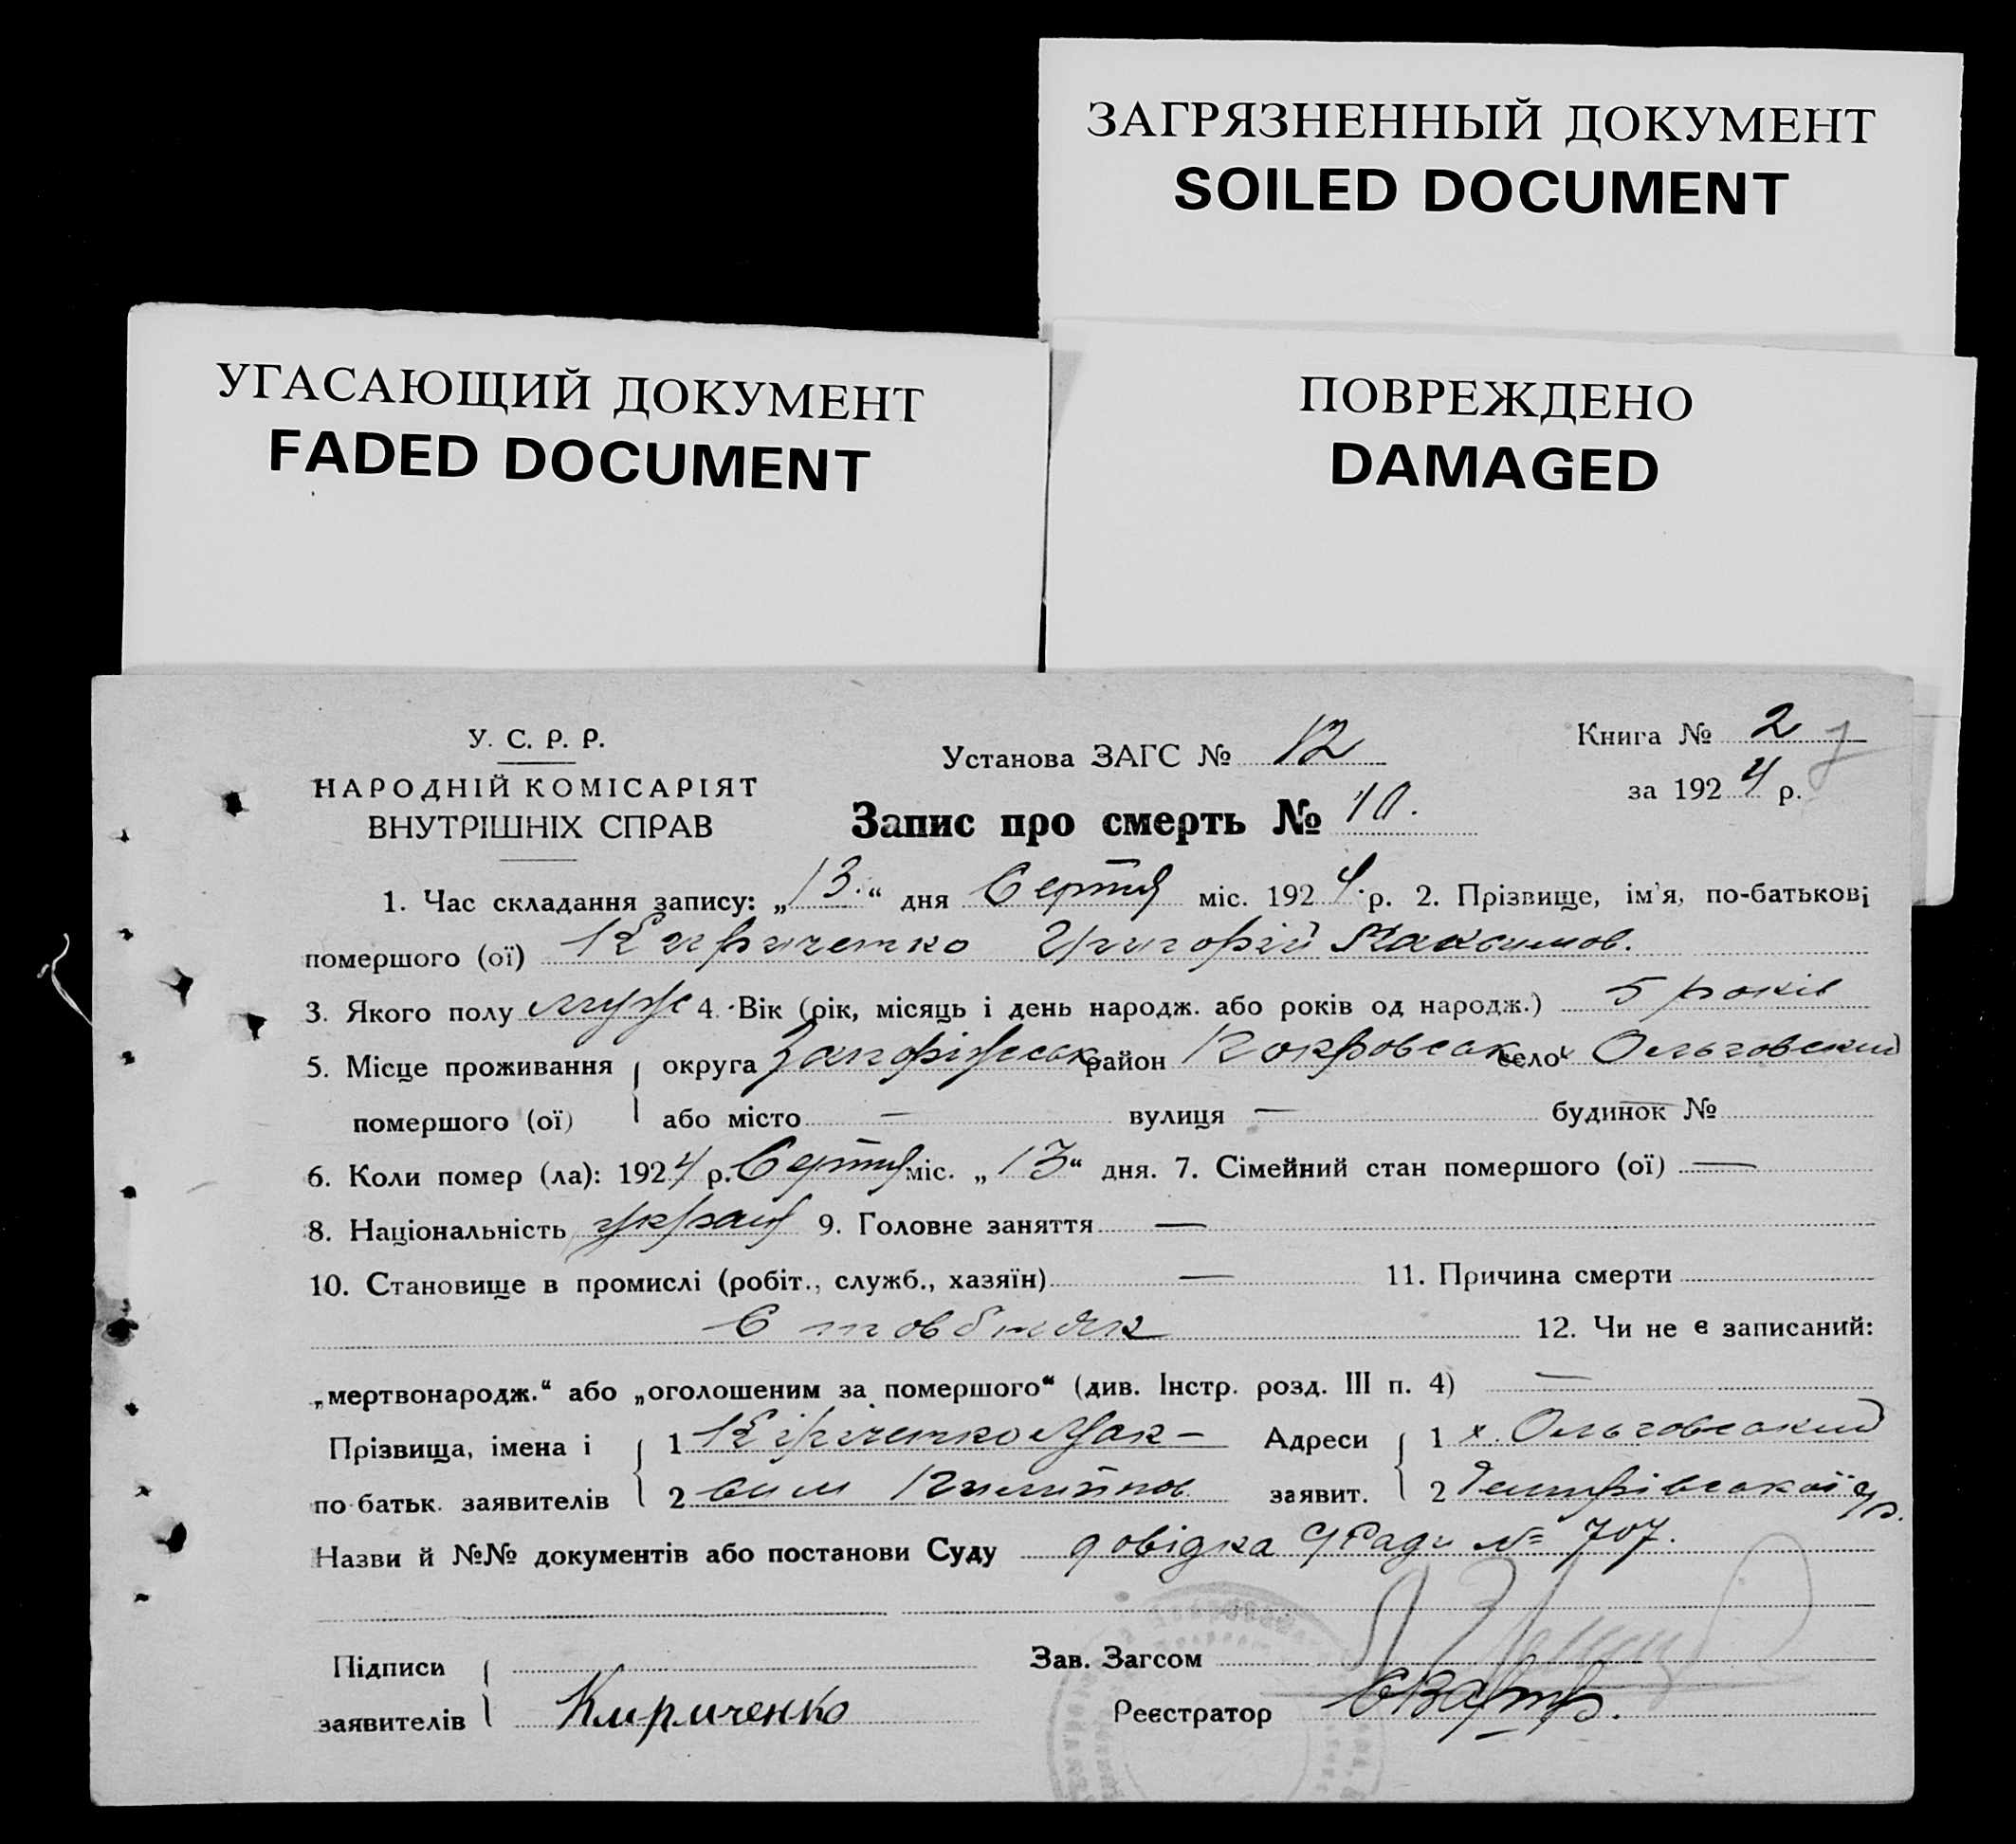 ЗАГРЯЗНЕННЫЙ ДОКУМЕНТ
SOILED DOCUMENT
УГАСАЮЩИЙ ДОКУМЕНТ
FADED DOCUMENT
ПОВРЕЖДЕНО
DAMAGED
У. С. Р. Р.
НАРОДНІЙ КОМІСАРІЯТ
ВНУТРІШНІХ СПРАВ
Установа ЗАГС № 12
Запис про смерть № 10.
Книга № 2
за 1924 р.
1. Час складання запису: „13.“ дня Серпня міс. 1924. р. 2. Прізвище, ім'я, по-батькові
помершого (ої) Кириченко Григорій Максимов.
3. Якого полу муж 4. Вік (рік, місяць і день народж. або років од народж.) 5 років
5. Місце проживання округа Запоріжськ район Покровськ село х Ольговский
помершого (ої) або місто — вулиця — будинок № —
6. Коли помер (ла): 1924 р. Серпня міс. „13“ дня. 7. Сімейний стан помершого (ої) —
8. Національність украц 9. Головне заняття —
10. Становище в промислі (робіт., служб., хазяїн) — 11. Причина смерти
Стовбняк 12. Чи не є записаний:
„мертвонародж.“ або „оголошеним за помершого“ (див. Інстр. розд. III п. 4) —
Прізвища, імена і 1 Кіріченко Мак- Адреси 1 х. Ольговський
по-батьк. заявителів 2 сим заявит. 2
Назви й №№ документів або постанови Суду довідка С/Ради № 707.
Підписи
заявителів Кириченко
Зав. Загсом
Реєстратор